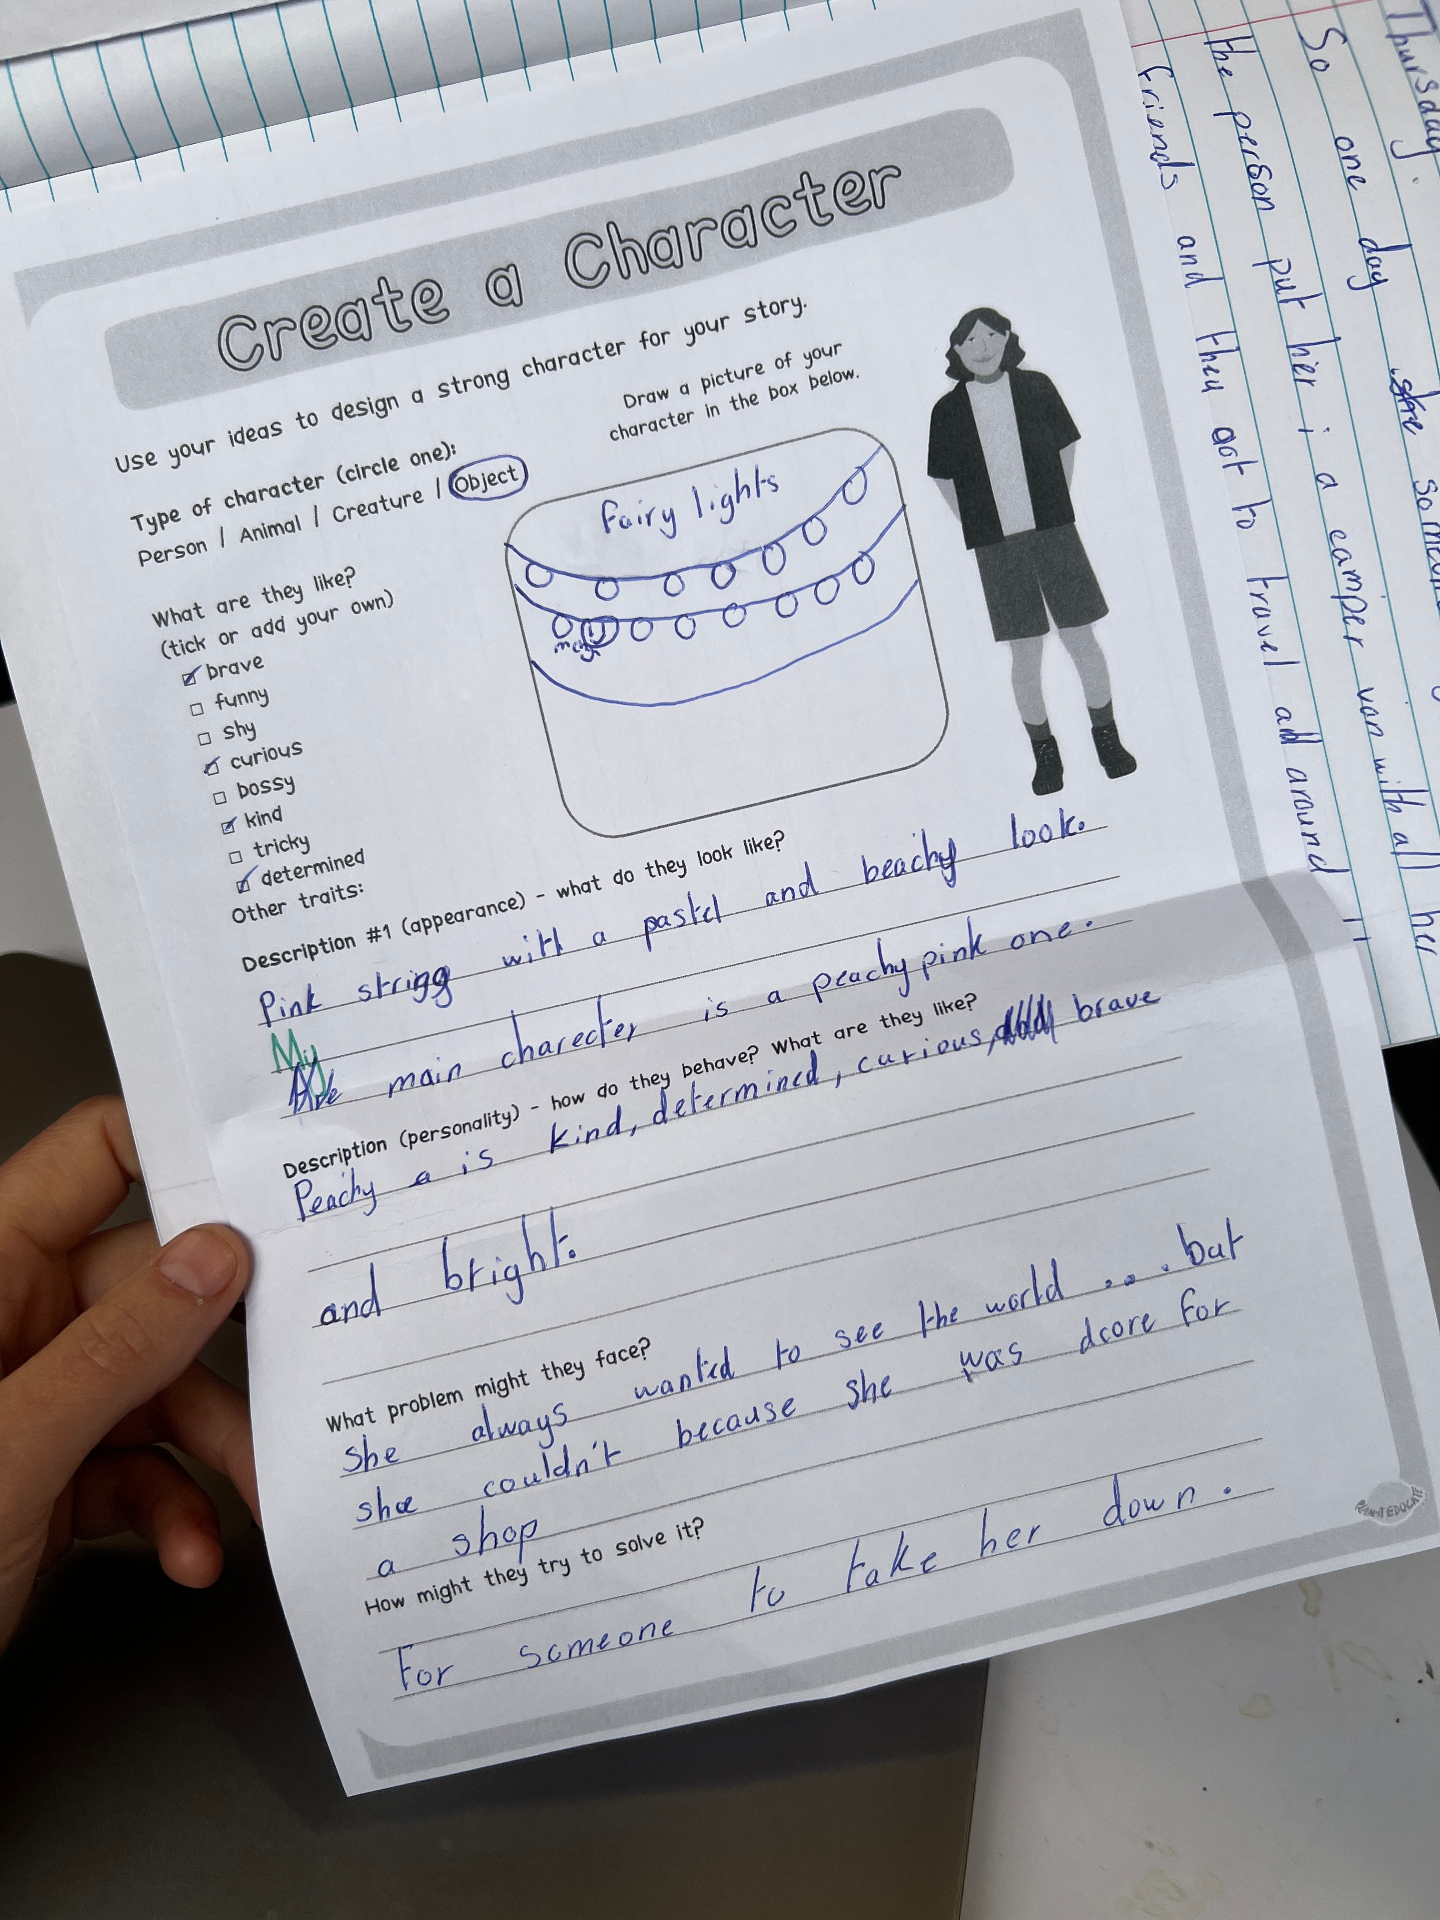 Create a Character
Use your ideas to design a strong character for your story.
Type of character (circle one):
Person / Animal / Creature / Object
What are they like?
(tick or add your own)
brave
funny
shy
curious
bossy
kind
tricky
determined
Other traits:
Draw a picture of your
character in the box below.
fairy lights
Description #1 (appearance) - what do they look like?
Pink string with a pastel and beachy look.
My main charecter is a peachy pink one.
Description (personality) - how do they behave? What are they like?
Peachy a is kind, determined, curious, brave
and bright.
What problem might they face?
She always wanted to see the world .... but
she couldn't because she was dcore for
a shop
How might they try to solve it?
For someone to take her down.
Thursday.
So one day she
the person put her i a camper van with all her
friends and they got to travel all around